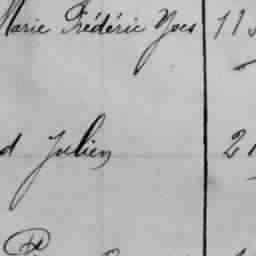 Marie Frédéric Yves 11
d Julien 21